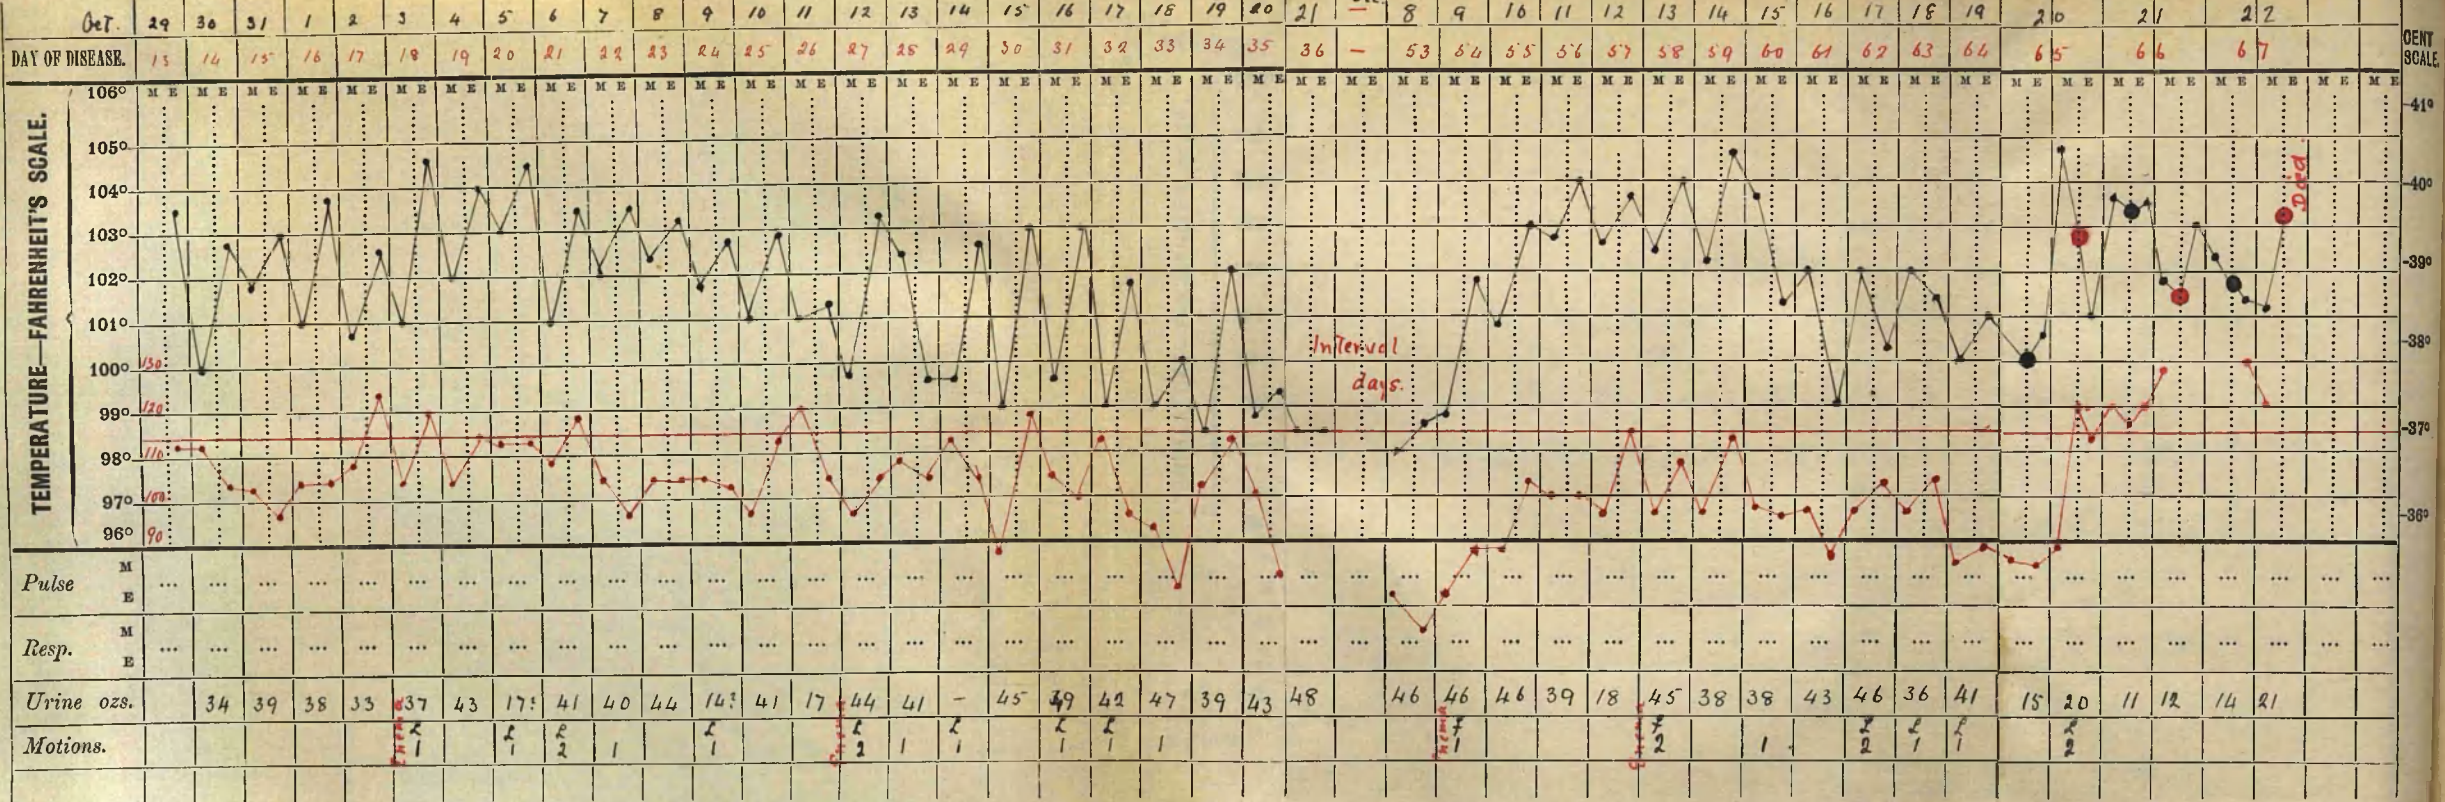 Oct. 29 30 31 1 2 3 4 5 6 7 8 9 10 11 12 13 14 15 16 17 18 19 20 21 — 8 9 10 11 12 13 14 15 16 17 18 19 20 21 22
DAY OF DISEASE. 13 14 15 16 17 18 19 20 21 22 23 24 25 26 27 28 29 30 31 32 33 34 35 36 — 53 54 55 56 57 58 59 60 61 62 63 64 65 66 67 CENT SCALE.
M E M E M E M E M E M E M E M E M E M E M E M E M E M E M E M E M E M E M E M E M E M E M E M E M E M E M E M E M E M E M E M E M E M E M E M E M E M E M E M E M E M E M E M E M E
TEMPERATURE—FAHRENHEIT'S SCALE.
106° 41°
105°
104° 40°
Died
103°
102° 39°
101°
Interval 38°
100° 130
days.
99° 120
37°
98° 110
97° 100
36°
96° 90
Pulse M E
Resp. M E
Urine ozs. 34 39 38 33 37 43 17? 41 40 44 14? 41 17 44 41 – 45 49 42 47 39 43 48 46 46 46 39 18 45 38 38 43 46 36 41 15 20 11 12 14 21
Enema Enema Enema Enema
£ £ £ £ £ £ £ £ £ £ £ £ £ £
Motions. 1 1 2 1 1 2 1 1 1 1 1 1 2 1 2 1 1 2